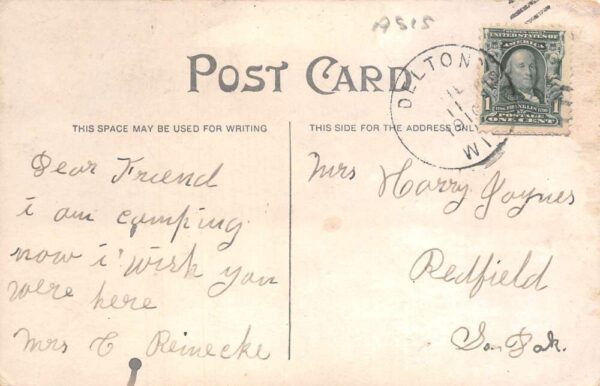 ASIS
POST CARD
THIS SPACE MAY BE USED FOR WRITING
THIS SIDE FOR THE ADDRESS ONLY
UNITED STATES OF
AMERICA
1 FRANKLIN 1
POSTAGE
ONE CENT
DELTON
WI
Dear Friend
i am camping
now i wish you
were here
Mrs C Reinecke
Mrs Harry Jaynes
Redfield
So. Dak.